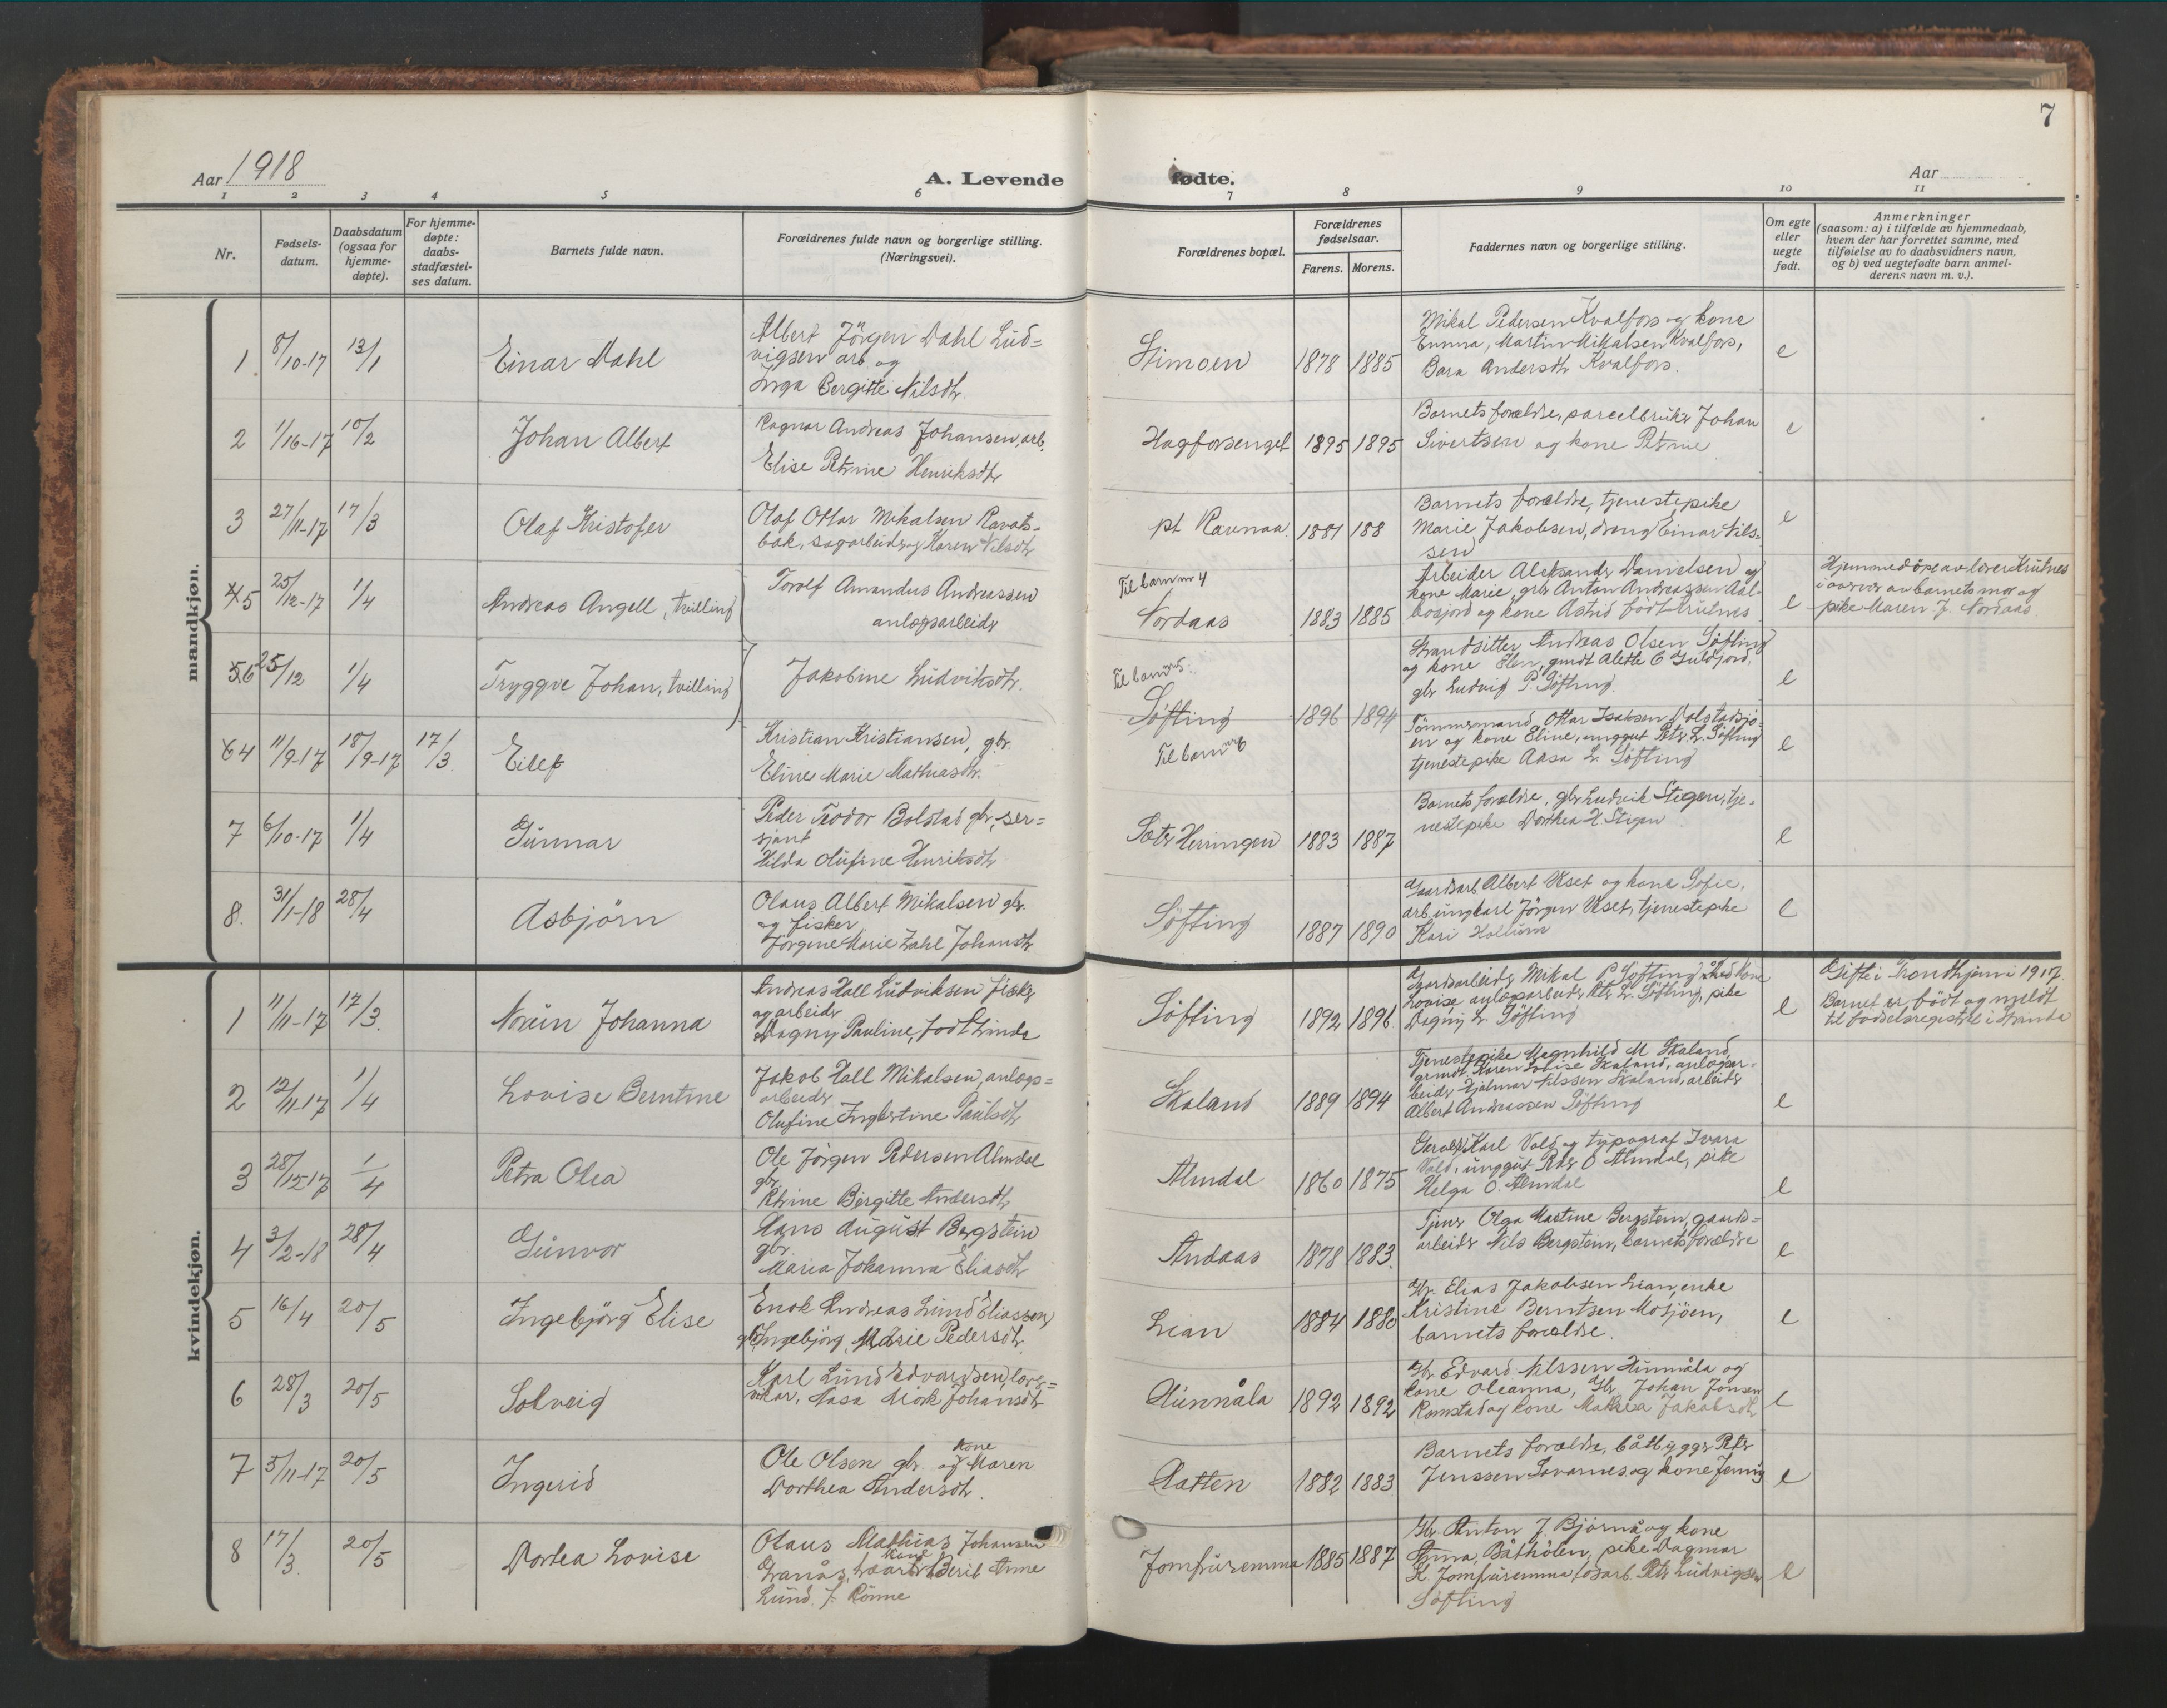 7
Aar 1918
A. Levende
fødte.
Aar
1 2 3 4 5 6 7 8 9 10 11
Nr.
Fødsels-
datum.
Daabsdatum
(ogsaa for
hjemme-
døpte).
For hjemme-
døpte:
daabs-
stadfæstel-
ses datum.
Barnets fulde navn.
Forældrenes fulde navn og borgerlige stilling.
(Næringsvei).
Forældrenes bopæl.
Forældrenes
fødselsaar.
Farens. Morens.
Faddernes navn og borgerlige stilling.
Om egte
eller
uegte
født.
Anmerkninger
(saasom: a) i tilfælde av hjemmedaab,
hvem der har forrettet samme, med
tilføielse av to daabsvidners navn,
og b) ved uegtefødte barn anmel-
derens navn m. v.).
mandkjøn.
1 8/10-17 13/1 Einar Dahl
Albert Jörgen Dahl Lud=
vigsen arb. og
Inga Bergitte Nilsdtr.
Stimoen 1878 1885
Mikal Pedersen Kvalfors og kone
Emma, Martin Mikalsen Kvalfors,
Bara Andersdtr Kvalfors.
e
2 1/16-17 10/2 Johan Albert
Ragnar Andreas Johansen, arb.
Elise Petrine Henriksdtr
Hagforsenget 1895 1895
Barnets forældre, parcelbruker Johan
Sivertsen og kone Petrine
e
3 27/11-17 17/3 Olaf Kristofer
Olaf Ottar Mikalsen Ravats-
bak, sagarbeider og Karen Nilsdtr
pt Ravnaa 1881 188
Barnets forældre, tjenestepike
Marie Jakobsen, dreng Einar Nils-
sen
e
5 25/12-17 1/4 Andreas Angell, tvilling
Torolf Amandus Andreassen
anlægsarbeider
Til barn nr 4
Nordaas 1883 1885
Arbeider Aleksander Danielsen og
kone Marie, grb Anton Andreassen Aal-
bosjord og kone Astrid født Krutnes
e
Hjemmedöpt av lærer Krutnes
i nærvær av barnets mor og
pike Maren J. Nordaas
6 25/12 1/4 Tryggve Johan, tvilling
Jakobine Ludviksdtr.
Til barn nr 5.
Søfting 1896 1894
Strandsitter Andreas Olsen Søfting
og kone Elen, gmdt Alette C Guldjord,
gbr Ludvig P. Søfting.
e
4 11/9-17 18/9-17 17/3. Eilef
Kristian Kristiansen, gbr.
Eline Marie Mathiasdtr.
Til barn nr 6
Tömmermand Ottar Isaksen Dolstadsjö-
en og kone Eline, unggut Peter L. Søfting
tjenestepike Aasa L. Søfting
e
7 6/10-17 1/4 Gunnar
Peder Teodor Bolstad gbr, ser=
sjant
Hilda Olufine Henriksdtr
Sæter Herringen 1883 1887
Barnets forældre, gbr Ludvik Stigen, tje-
nestepike Dorthea H. Stigen
e
8. 31/1-18 28/4 Asbjörn
Olaus Albert Mikalsen gbr.
og fisker
Jörgine Marie Zahl Johansdtr
Søfting 1887 1890
Gaardsarb. Albert Ukset og kone Sofie,
arb. ungkarl Jörgen Ukset, tjenestepike
Kari Hallum
e
kvindekjøn.
1 11/11-17 17/3. Noruin Johanna
Andreas Hall Ludviksen fisker
og arbeider
Dagny Pauline, født Linda
Søfting 1892 1896
Gaardsarbeider Mikal P. Søfting og kone
Lovise anlægsarbeider Peter L. Søfting, pike
Dagny L. Søfting
e
Gifte i Trondhjem i 1917.
Barnet er født og meldt
til fødselsregistret i Strinda
2 12/11-17 1/4 Lovise Berntine
Jakob Hall Mikalsen, anlegs=
arbeider
Olufine Ingbertine Paulsdtr
Skaland 1889 1894
Tjenestepike Magnhild M Skaland
grmdt. Karen Lovise Skaland, anlægsar-
beider Hjalmar Nilssen Skaland, arbeider
Albert Andreassen Søfting
e
3 28/12-17 1/4 Petra Olea
Ole Jörgen Pedersen Almdal
gbr.
Petrine Bergitte Andersdtr
Almdal 1860 1875
Karl Vold og typograf Ivara
Vold, unggut Peder O Almdal, pike
Helga O. Almdal
e
4 3/2-18 28/4 Gunvor
Hans August Bergstein
gbr.
Maria Johanna Eliasdtr
Andaas 1878 1883.
Tjener Olga Martine Bergstein, gaards=
arbeider Nils Bergstein, barnets forældre
e
5 16/4 20/5 Ingebjörg Elise
Enok Andreas Lund Eliassen
gbr Ingebjörg Marie Pedersdtr.
Lian 1884 1880
Gbr. Elias Jakobsen Lian, enke
Kristine Berntsen Mosjöen,
barnets forældre.
e
6 28/3 20/5 Solveig
Karl Lund Edvardsen, lær=
vikar, Aasa Mörk Johansdtr
Hunnåla 1892 1892
Gbr. Edvard Nilssen Hunnåla og
kone Oleanna, Gbr. Johan Jonsen
Ramstad og kone Mathea Jakobsdtr
e
7 5/11-17 20/5 Ingerid
Ole Olsen gbr. og kone Maren
Dorthea Andersdtr.
Hatten 1882 1883
Barnets forældre, båtbygger Peter
Jenssen Sovarnes og kone Jenny
e
8 17/3. 20/5 Dortea Lovise
Olaus Mathias Johansen
Granås, kone Berit Anne
Lund f. Rönne
Jomfruremma 1885 1887
Gbr. Anton J. Björnå og kone
Anna, Båthölen, pike Dagmar
K. Jomfruremma, losarb. Peter Ludvigsen
Søfting
e